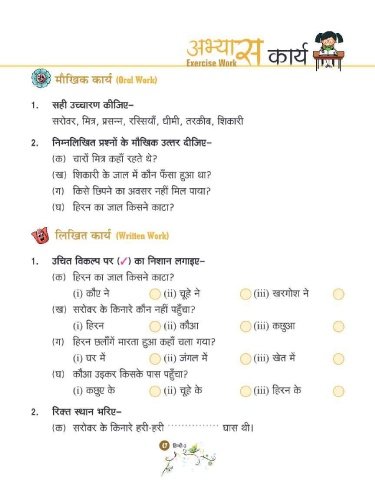 अभ्यास कार्य
Exercise Work
मौखिक कार्य (Oral Work)
1. सही उच्चारण कीजिए–
सरोवर, मित्र, प्रसन्न, रस्सियाँ, धीमी, तरकीब, शिकारी
2. निम्नलिखित प्रश्नों के मौखिक उत्तर दीजिए–
(क) चारों मित्र कहाँ रहते थे?
(ख) शिकारी के जाल में कौन फँसा हुआ था?
(ग) किसे छिपने का अवसर नहीं मिल पाया?
(घ) हिरन का जाल किसने काटा?
लिखित कार्य (Written Work)
1. उचित विकल्प पर (✓) का निशान लगाइए–
(क) हिरन का जाल किसने काटा?
(i) कौए ने (ii) चूहे ने (iii) खरगोश ने
(ख) सरोवर के किनारे कौन नहीं पहुँचा?
(i) हिरन (ii) कौआ (iii) कछुआ
(ग) हिरन छलाँगें मारता हुआ कहाँ चला गया?
(i) घर में (ii) जंगल में (iii) खेत में
(घ) कौआ उड़कर किसके पास पहुँचा?
(i) कछुए के (ii) चूहे के (iii) हिरन के
2. रिक्त स्थान भरिए–
(क) सरोवर के किनारे हरी-हरी .................. घास थी।